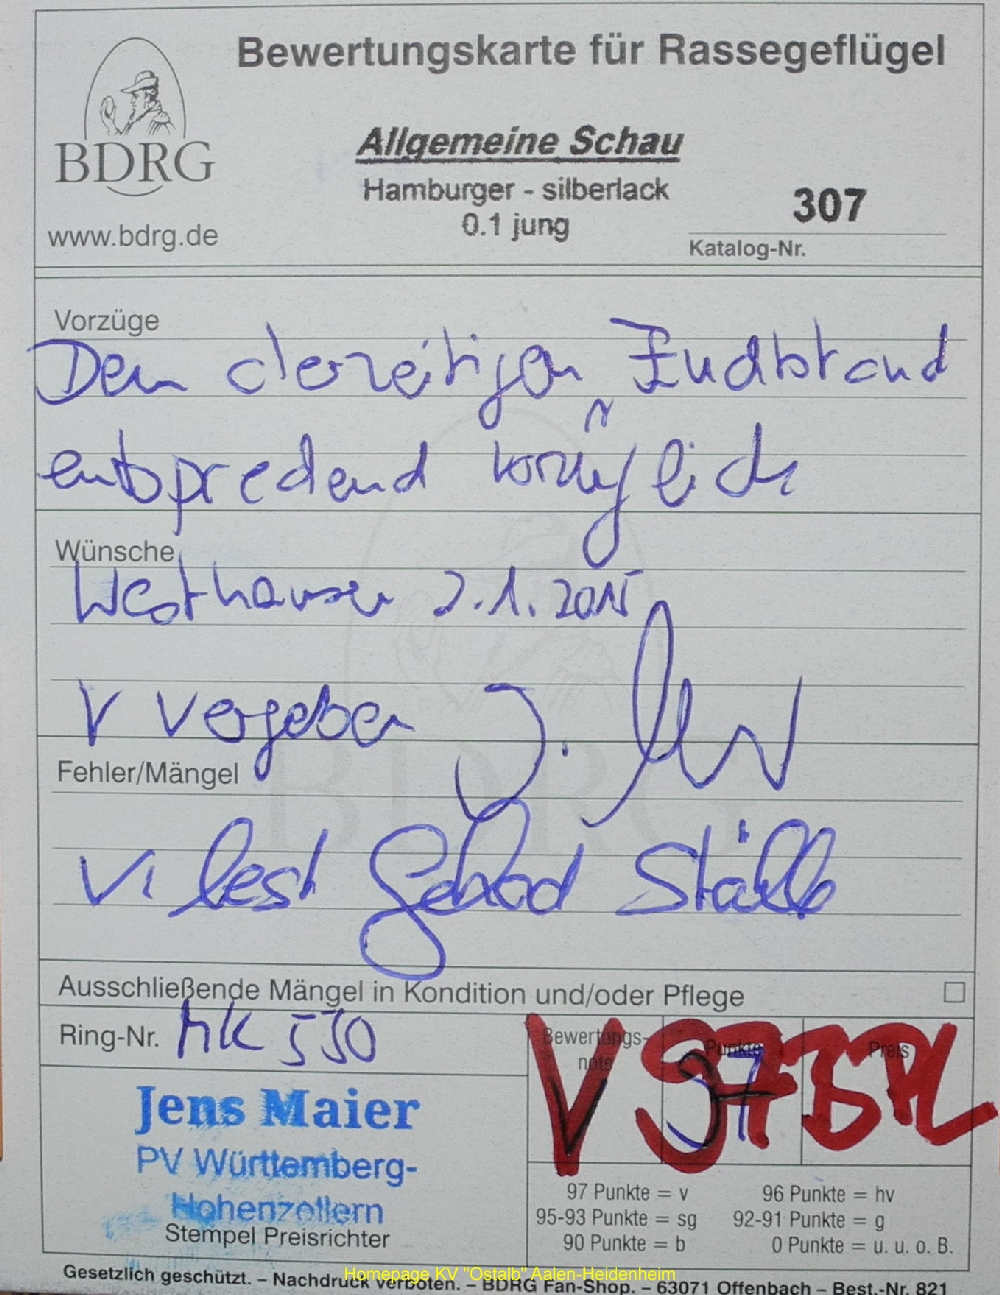 Bewertungskarte für Rassegeflügel
BDRG
www.bdrg.de
Allgemeine Schau
Hamburger - silberlack
0.1 jung
307
Katalog-Nr.
Vorzüge
Dem derzeitigen Zuchtstand
entsprechend vorzüglich
Wünsche
Westhausen 2.1.2015
V vergeben J.
Fehler/Mängel
V.
Ausschließende Mängel in Kondition und/oder Pflege
Ring-Nr. MK 530
Bewertungs-
note
Punkte
Preis
V 97
Jens Maier
PV Württemberg-
Hohenzollern
Stempel Preisrichter
97 Punkte = v 96 Punkte = hv
95-93 Punkte = sg 92-91 Punkte = g
90 Punkte = b 0 Punkte = u. u. o. B.
Gesetzlich geschützt. – Nachdruck verboten. – BDRG Fan-Shop. – 63071 Offenbach – Best.-Nr. 821
Homepage KV "Ostalb" Aalen-Heidenheim